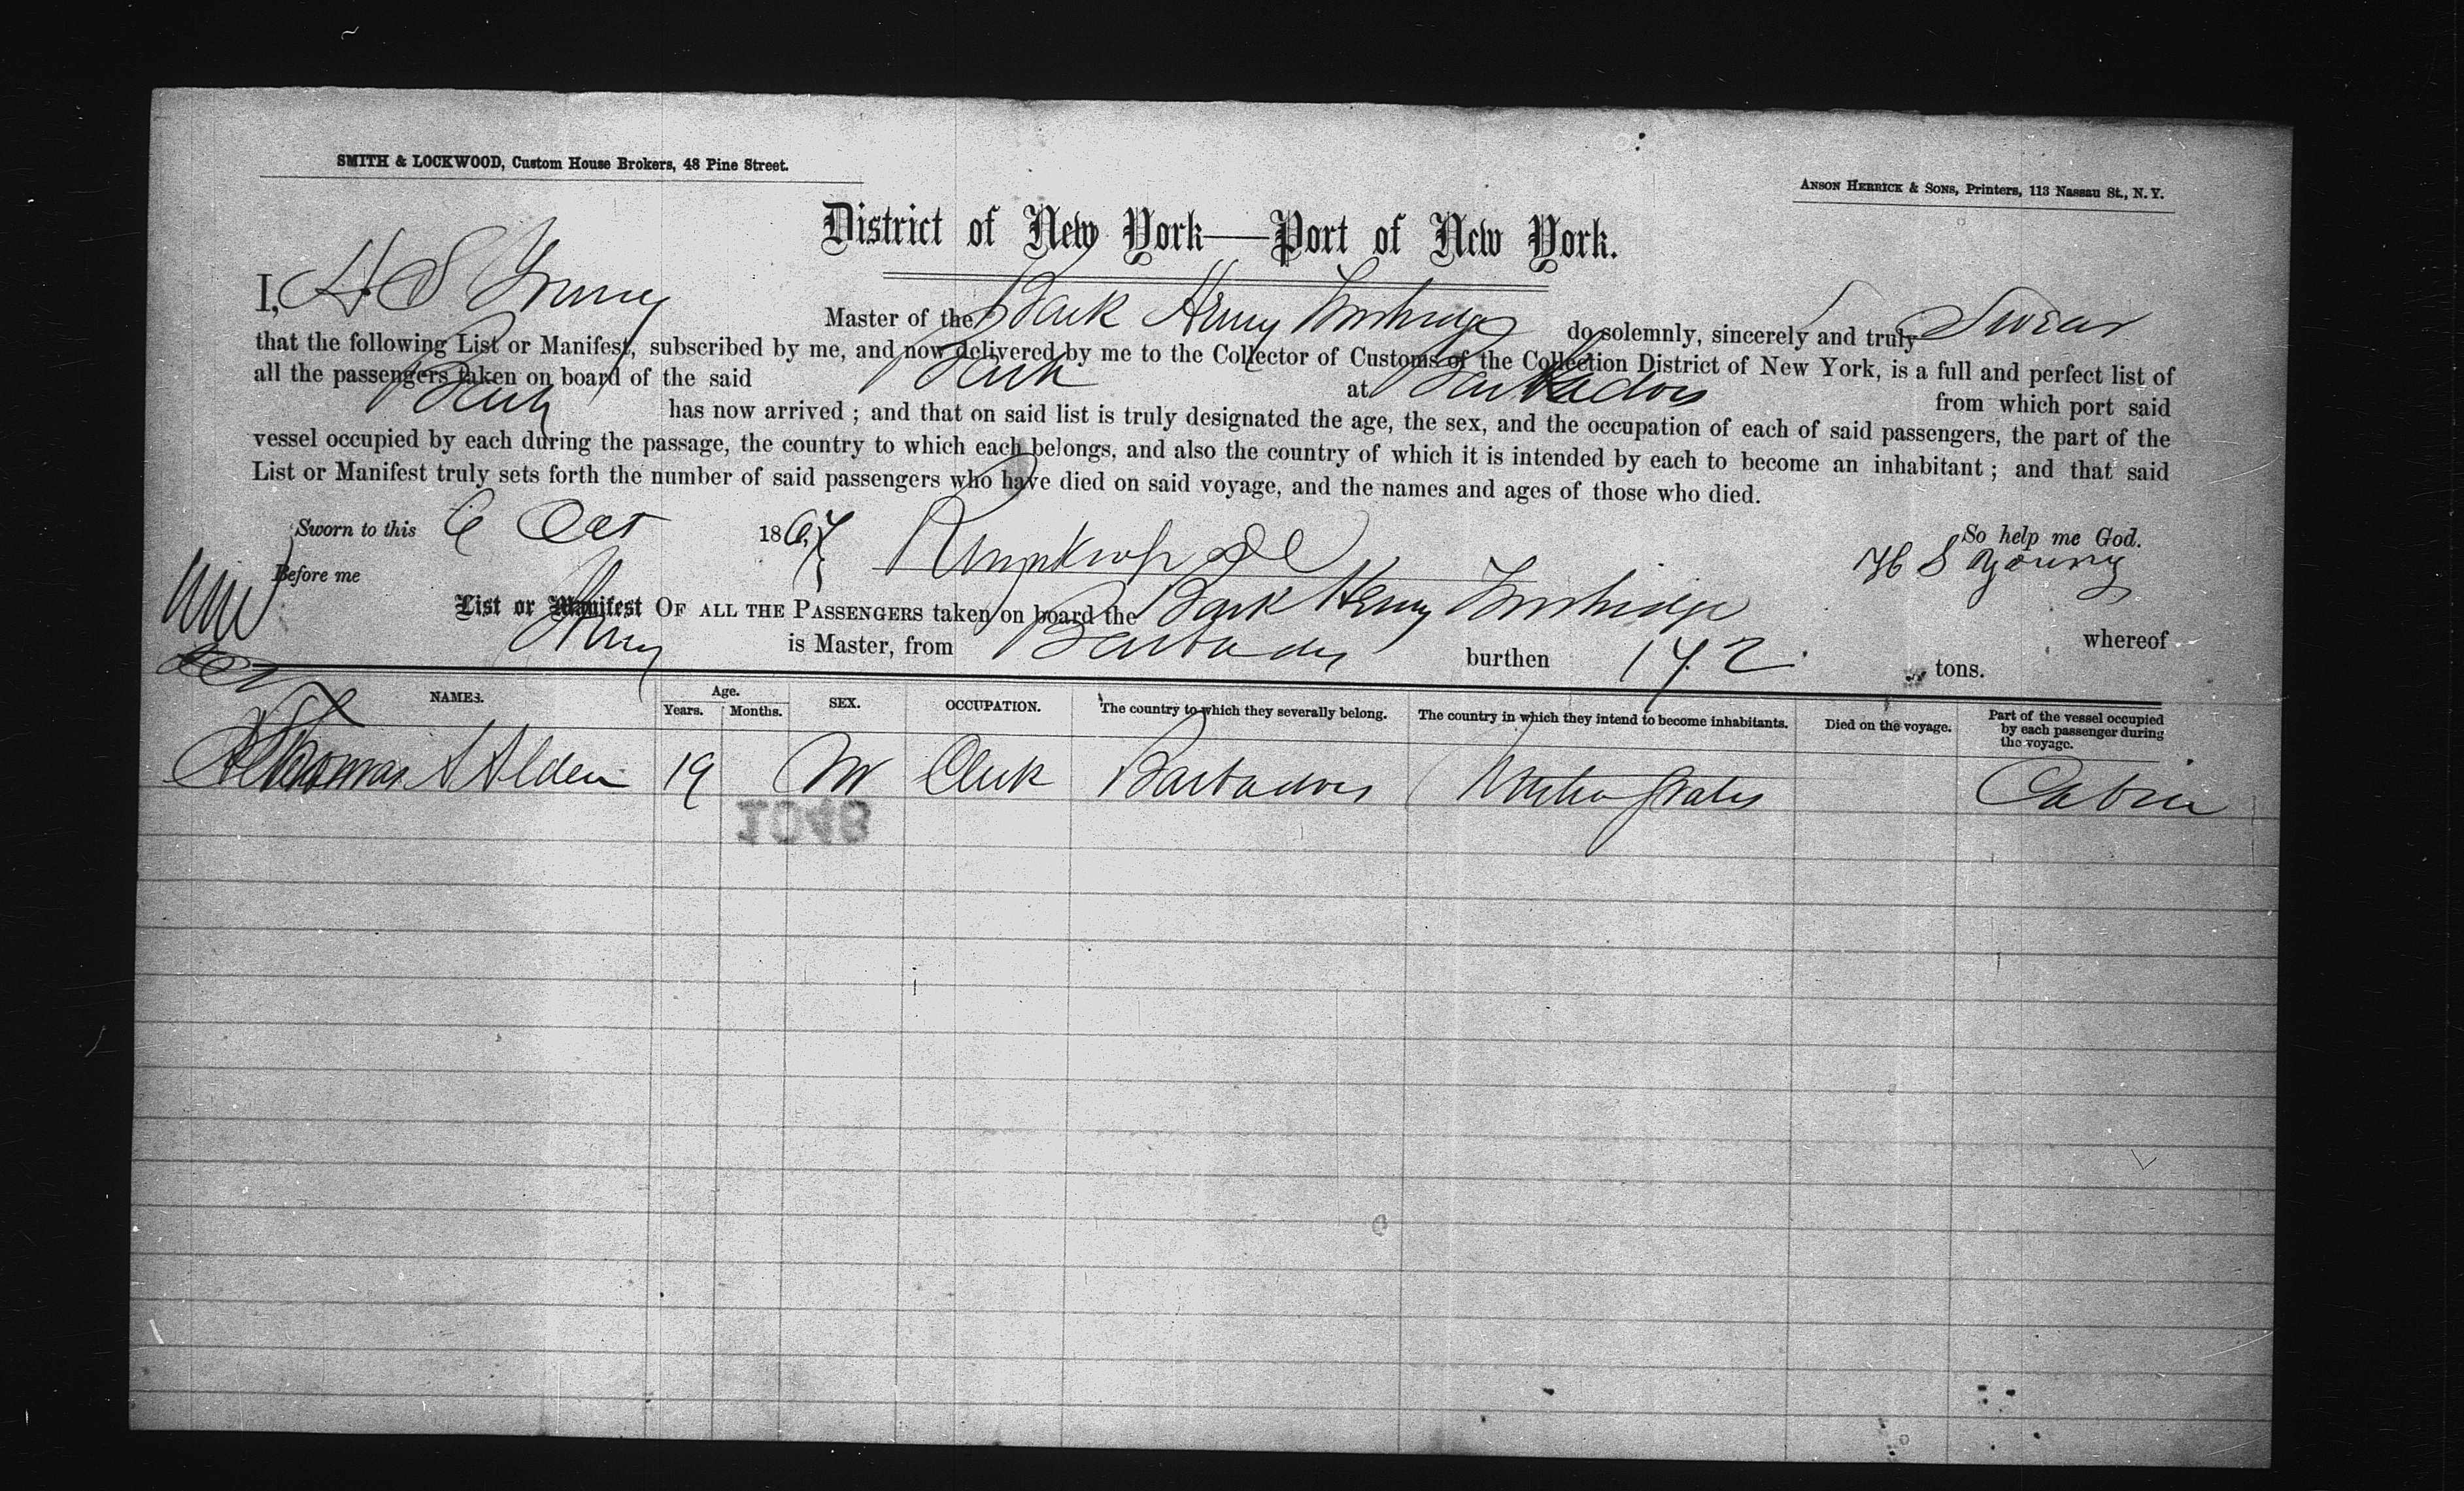 SMITH & LOCKWOOD, Custom House Brokers, 48 Pine Street.
ANSON HERRICK & SONS, Printers, 113 Nassau St., N. Y.
District of New York—Port of New York.
I, H S Young Master of the Bark Henry Trowbridge do solemnly, sincerely and truly Swear
that the following List or Manifest, subscribed by me, and now delivered by me to the Collector of Customs of the Collection District of New York, is a full and perfect list of
all the passengers taken on board of the said Bark at Barbadoes from which port said
Bark has now arrived ; and that on said list is truly designated the age, the sex, and the occupation of each of said passengers, the part of the
vessel occupied by each during the passage, the country to which each belongs, and also the country of which it is intended by each to become an inhabitant ; and that said
List or Manifest truly sets forth the number of said passengers who have died on said voyage, and the names and ages of those who died.
Sworn to this 6 Oct 1867 So help me God.
Before me H S Young
List or Manifest OF ALL THE PASSENGERS taken on board the Bark Henry Trowbridge whereof
Young is Master, from Barbadoes burthen 142 tons.
NAMES. Age. Years. Months. SEX. OCCUPATION. The country to which they severally belong. The country in which they intend to become inhabitants. Died on the voyage. Part of the vessel occupied by each passenger during the voyage.
Thomas S Alden 19 M Clerk Barbadoes United States Cabin
1046